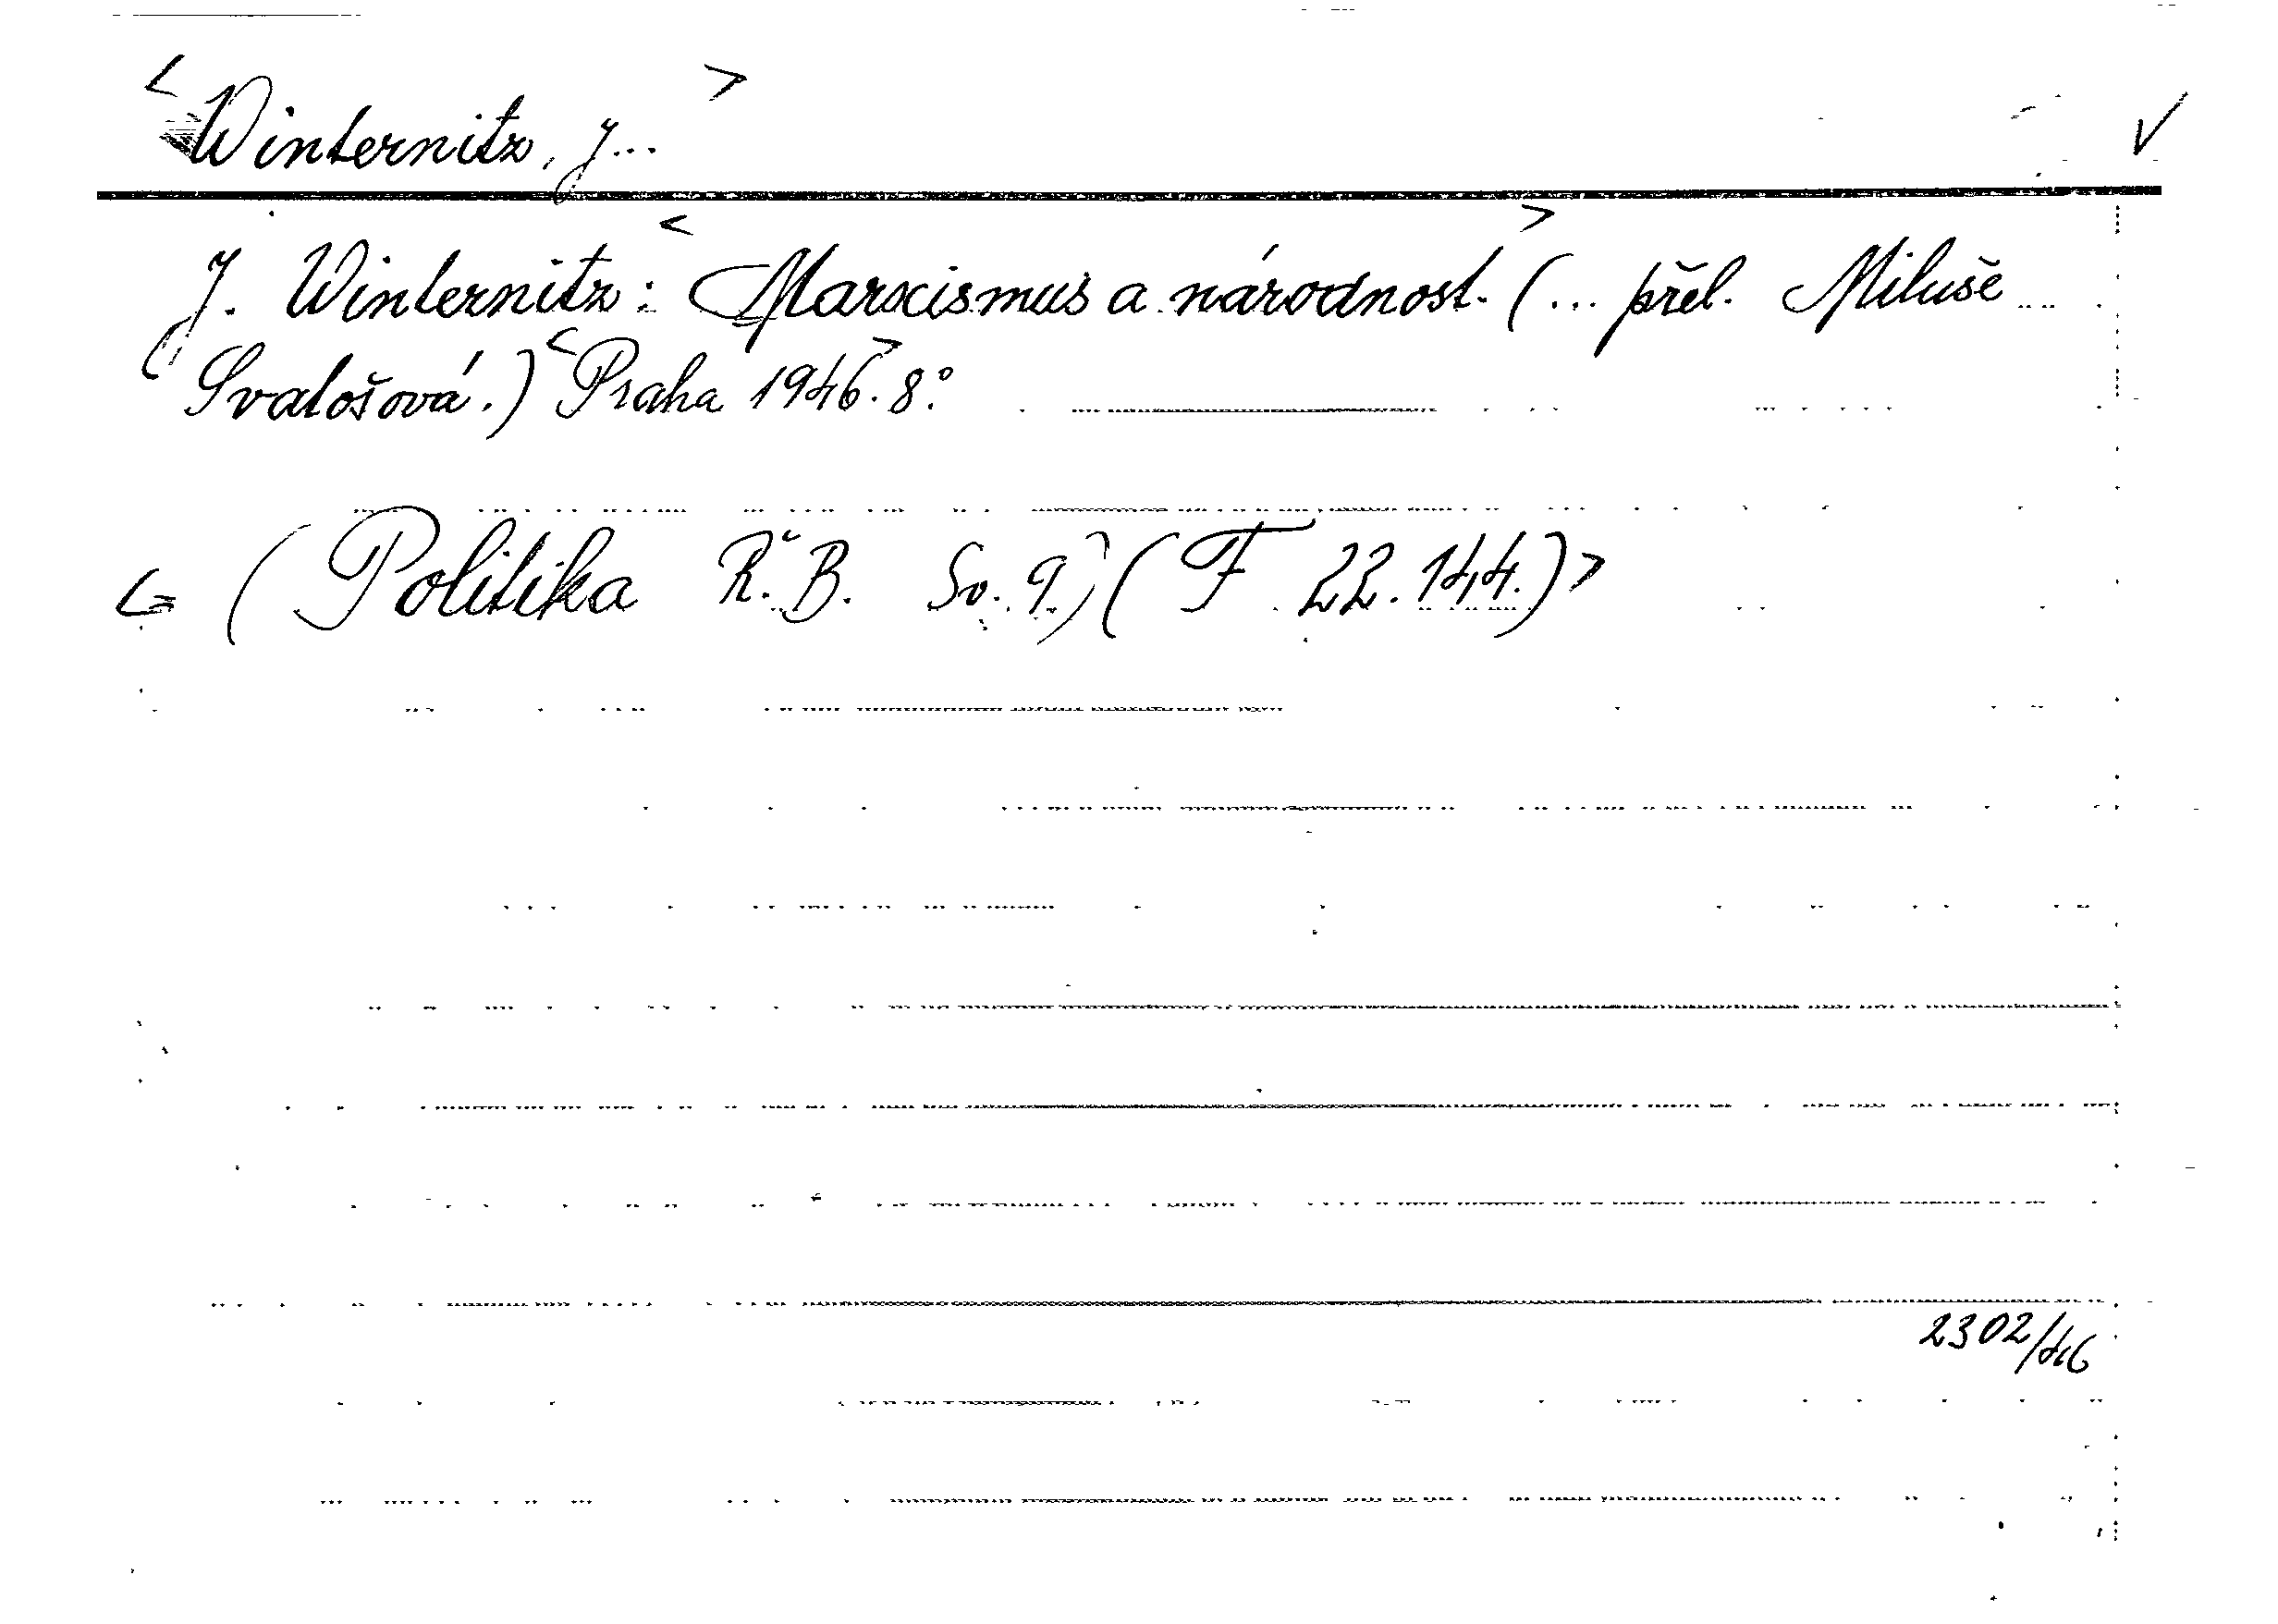 <Winternitz, J...>
J. Winternitz: <Marxismus a národnost.> (... přel. Miluše
Svatošová.) <Praha 1946>. 8°.
<(Politika Ř. B. Sv. 9.) (F 22.144.)>
2302/46